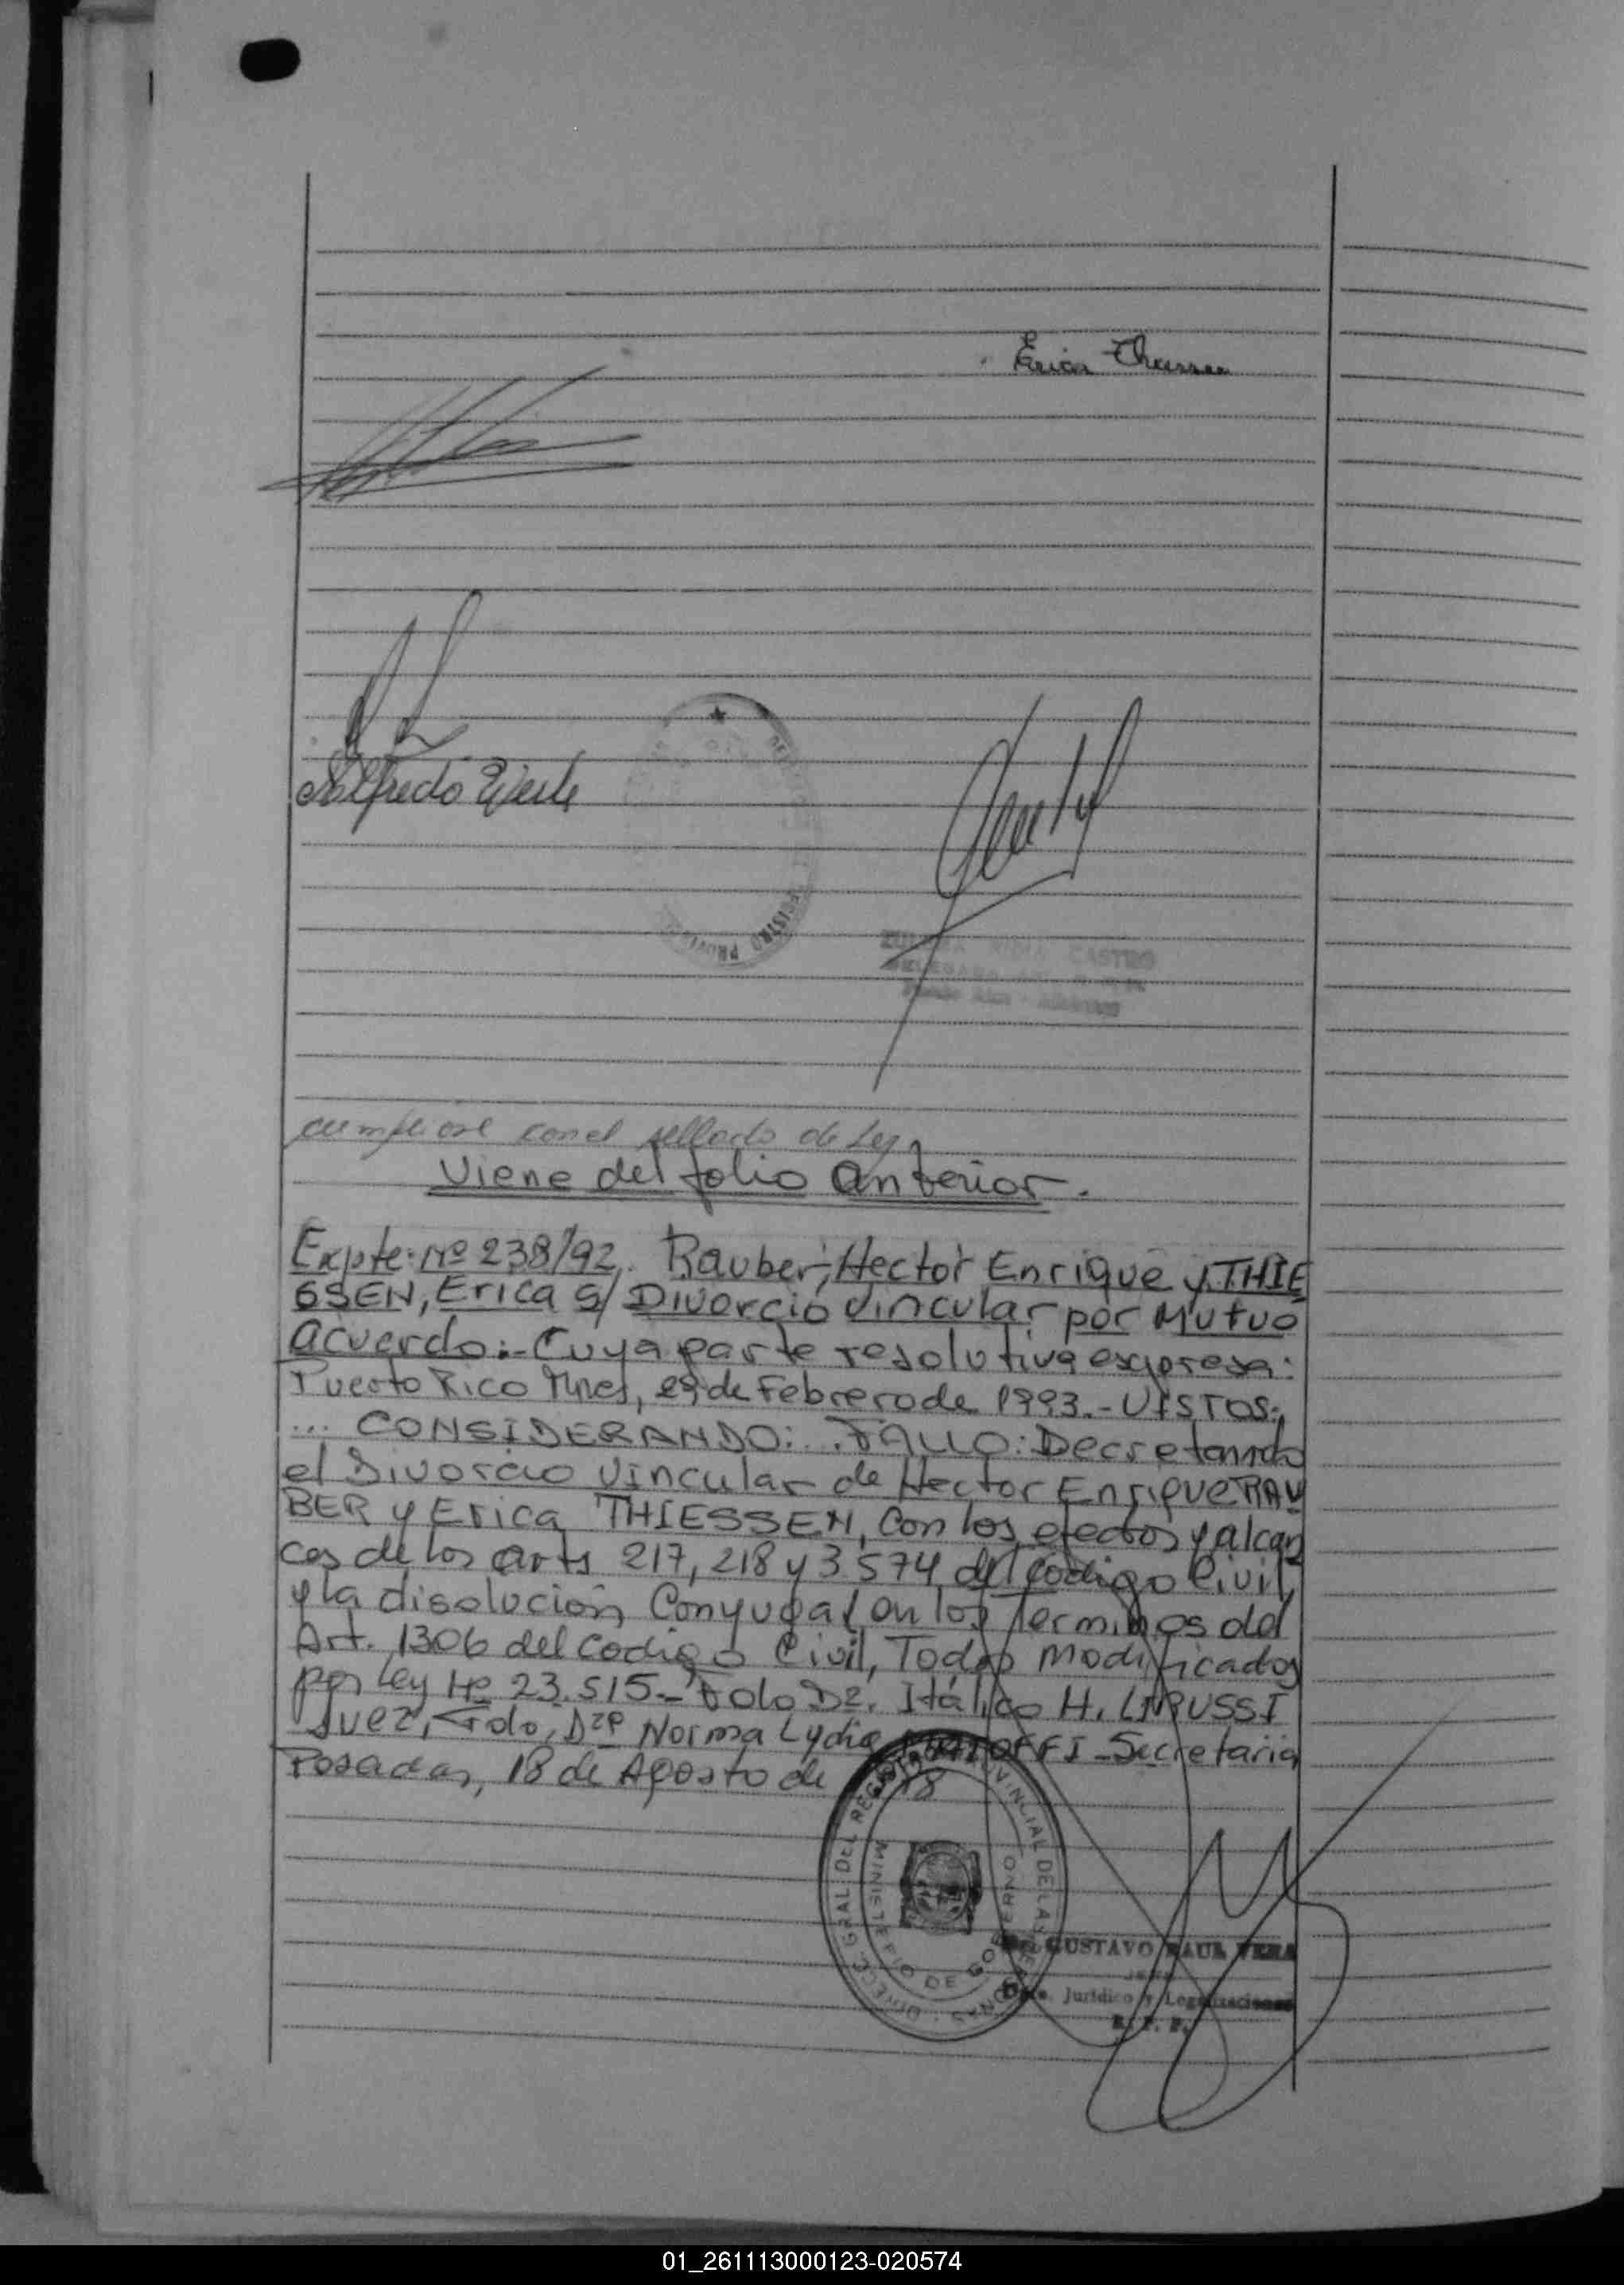 Erica Thiessen
Alfredo
★
REGISTRO PROVINCIAL
CASTRO
cumpliose con el sellado de Ley
Viene del folio anterior.
Expte: Nº 238/92. Rauber, Hector Enrique y THIE
SSEN, Erica S/ Divorcio Vincular por Mutuo
acuerdo:- Cuya parte resolutiva expresa:
Puerto Rico Mnes, de Febrero de 1993.- VISTOS:,
... CONSIDERANDO: .. FALLO: Decretando
el Divorcio Vincular de Hector Enrique RAU
BER y Erica THIESSEN, Con los efectos y alcan
ces de los arts 217, 218 y 3.574 del Codigo Civil,
y la disolución Conyugal en los Terminos del
Art. 1306 del Codigo Civil, Todos Modificados
por Ley Nº 23.515.- Fdo Dr. Itálico H. LIRUSSI
Juez, Fdo, Drª Norma Lydia Secretaria
Posadas, 18 de Agosto de
DIRECC. GRAL. DEL REGISTRO PROVINCIAL DE LAS PERSONAS
MINISTERIO DE GOBIERNO
GUSTAVO RAUL VERA
JEFE
Dpto. Jurídico y Legalizaciones
R. P. P.
01_261113000123-020574